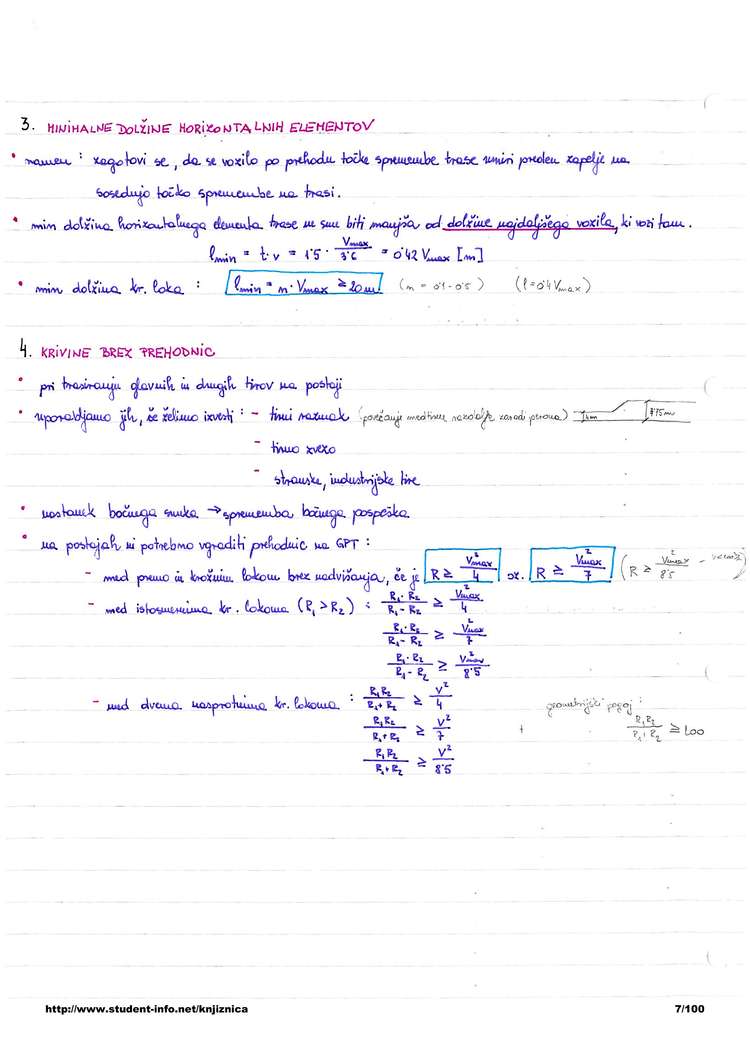 3. MINIMALNE DOLŽINE HORIZONTALNIH ELEMENTOV
• namen : zagotovi se, da se vozilo po prehodu točke spremembe trase umiri preden zapelje na
sosednjo točko spremembe na trasi.
• min dolžina horizontalnega elementa trase ne sme biti manjša od dolžine najdaljšega vozila, ki vozi tam.
lmin = t·v = 1'5 · Vmax/3'6 = 0'42 Vmax [m]
• min dolžina kr. loka : lmin = n·Vmax ≥ 20m (n = 0'1-0'5) (l=0'4Vmax)
4. KRIVINE BREZ PREHODNIC
• pri trasiranju glavnih in drugih tirov na postaji
• uporabljamo jih, če želimo izvesti : - tirni razmak (povečanje medtirne razdalje zaradi perona) 4'75m
- tirno zvezo
- stranske, industrijske tire
• nastanek bočnega sunka → sprememba bočnega pospeška
• na postajah ni potrebno vgraditi prehodnic na GPT :
- med premo in krožnim lokom brez nadvišanja, če je R ≥ Vmax²/4 oz. R ≥ Vmax²/7 (R ≥ Vmax²/8'5 -
- med istosmernima kr. lokoma (R1 > R2) : R1·R2/R1-R2 ≥ Vmax²/4
R1·R2/R1-R2 ≥ Vmax²/7
R1·R2/R1-R2 ≥ Vmax²/8'5
- med dvema nasprotnima kr. lokoma : R1R2/R1+R2 ≥ V²/4 geometrijski pogoj :
R1R2/R1+R2 ≥ V²/7 + R1R2/R1+R2 ≥ 100
R1R2/R1+R2 ≥ V²/8'5
http://www.student-info.net/knjiznica 7/100